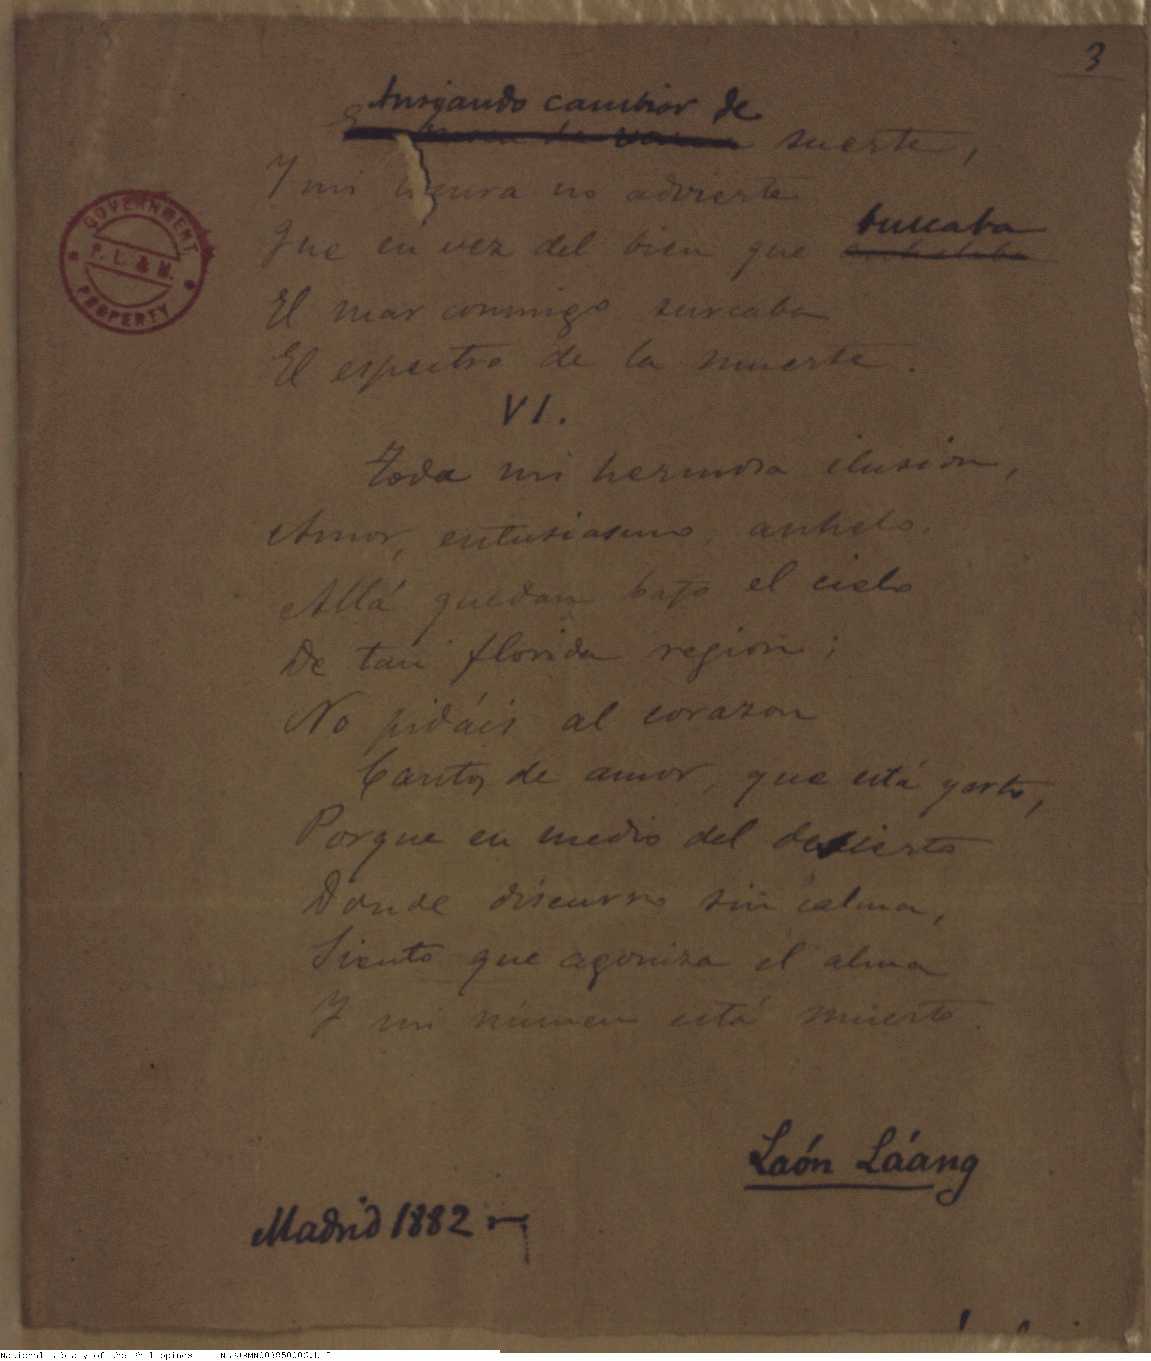 3
Ansiando cambiar de
suerte,
Y mi locura no advierte
Que en vez del bien que buscaba
El mar conmigo surcaba
El espectro de la muerte.
VI.
Toda mi hermosa ilusion,
Amor, entusiasmo, anhelo.
Allá quedan bajo el cielo
De tan florida region;
No pidáis al corazon
Cantos de amor, que está yerto,
Porque en medio del desierto
Donde discurro sin calma,
Siento que agoniza el alma
Y mi númen está muerto.
Laón Láang
Madrid 1882
GOVERNMENT
P. L. & M.
PROPERTY
National Library of the Philippines